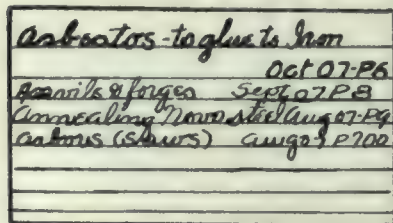 asbestors - to glue to Iron
Oct 07-P6
Anvils & forges Sept 07 P8
Annealing Novo steel Aug 07-P9
(skurs) Aug 07 P200